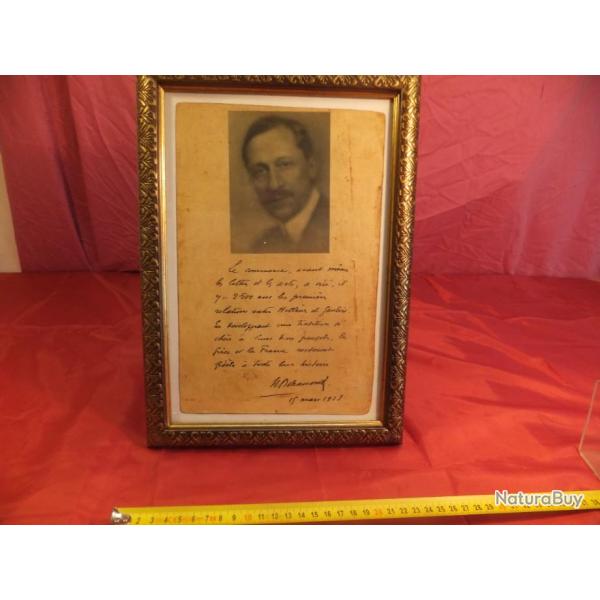 Le commerce, avant même
les lettres et les arts, a créé, il
y a 2500 ans les premières
relations entre Hellènes et Gaulois
En développant une tradition si
chère à leurs deux peuples, la
Grèce et la France resteront
fidèles à toute leur histoire
15 mars 1923
2 3 4 5 6 7 8 9 10 11 12 13 14 15 16 17 18 19 20 21 22 23 24 25 26 27 28 29
NaturaBuy